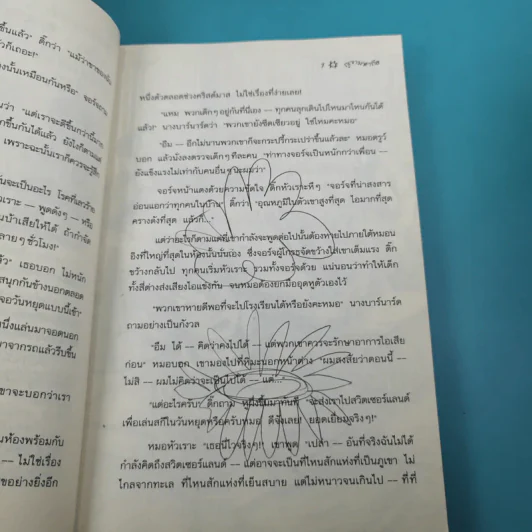 ขึ้นแล้ว" ดิ๊กว่า "แม้ว่าเขาจะเหมือน
ก็เถอะ!"
งนั้นเหมือนกันหรือ" จอร์จถาม
นว่า "แต่เราจะดีขึ้นกว่านี้มาก
เพราะฉะนั้นเราก็ควรจะรู้สึก
นจะเป็นอะไร โรคที่เลวร้าย
เราะ — พูดดังๆ — หรือ
ลายๆ ชั่วโมง!"
ล้ว" เธอบอก ไม่หนัก
สนุกกันข้างนอกตลอด
จอวันหยุดแบบนี้เข้า"
นึ่งแล่นมาจอดนอก
าจากรถแล้วรีบขึ้น
ขาจะบอกว่าเรา
นห้องพร้อมกับ
— ไม่ใช่เรื่อง
ขอย่างยิ่งอีก
7
หนึ่งตัวตลอดช่วงคริสต์มาส ไม่ใช่เรื่องที่ง่ายเลย!
"แหม พวกเด็กๆ อยู่กันที่นี่เอง — ทุกคนลุกเดินไปไหนมาไหนกันได้
แล้ว!" นางบาร์นาร์ดว่า "พวกเขายังซีดเซียวอยู่ ใช่ไหมคะหมอ"
"อืม — อีกไม่นานพวกเขาก็จะกระปรี้กระเปร่าขึ้นแล้วละ" หมอดรูว์
บอก แล้วนั่งลงตรวจเด็กๆ ทีละคน "ท่าทางจอร์จเป็นหนักกว่าเพื่อน —
ยังแข็งแรงไม่เท่ากับคนอื่นๆ นะผมว่า"
จอร์จหน้าแดงด้วยความขัดใจ ดิ๊กหัวเราะหึๆ "จอร์จที่น่าสงสาร
อ่อนแอกว่าทุกคนในบ้าน" ดิ๊กว่า "อุณหภูมิในตัวเขาสูงที่สุด ไอมากที่สุด
ครางดังที่สุด แล้วก็..."
แต่ว่าอะไรก็ตามแต่ที่เขากำลังจะพูดต่อไปนั้นต้องหายไปภายใต้หมอน
อิงที่ใหญ่ที่สุดในห้องนั้นนั่นเอง ซึ่งจอร์จผู้โกรธจัดขว้างใส่เขาเต็มแรง ดิ๊ก
ขว้างกลับไป ทุกคนเริ่มหัวเราะ รวมทั้งจอร์จด้วย แน่นอนว่าทำให้เด็ก
ทั้งสี่ต่างส่งเสียงไอแข่งกัน จนหมอต้องยกมืออุดหูตัวเองไว้
"พวกเขาหายดีพอที่จะไปโรงเรียนได้หรือยังคะหมอ" นางบาร์นาร์ด
ถามอย่างเป็นกังวล
"อืม ได้ — คิดว่าคงไปได้ — แต่พวกเขาควรจะรักษาอาการไอเสีย
ก่อน" หมอบอก เขามองไปที่หิมะนอกหน้าต่าง "ผมสงสัยว่าตอนนี้ —
ไม่สิ — ผมไม่คิดว่าจะเป็นไปได้ — แต่..."
"แต่อะไรครับ" ดิ๊กถาม หูผึ่งขึ้นมาทันที "จะส่งเราไปสวิตเซอร์แลนด์
เพื่อเล่นสกีในวันหยุดหรือครับหมอ ดีจังเลย! ยอดเยี่ยมจริงๆ!"
หมอหัวเราะ "เธอนี่ไวจริงๆ!" เขาพูด "เปล่า — อันที่จริงฉันไม่ได้
กำลังคิดถึงสวิตเซอร์แลนด์ — แต่อาจจะเป็นที่ไหนสักแห่งที่เป็นภูเขา ไม่
ไกลจากทะเล ที่ไหนสักแห่งที่เย็นสบาย แต่ไม่หนาวจนเกินไป — ที่ที่